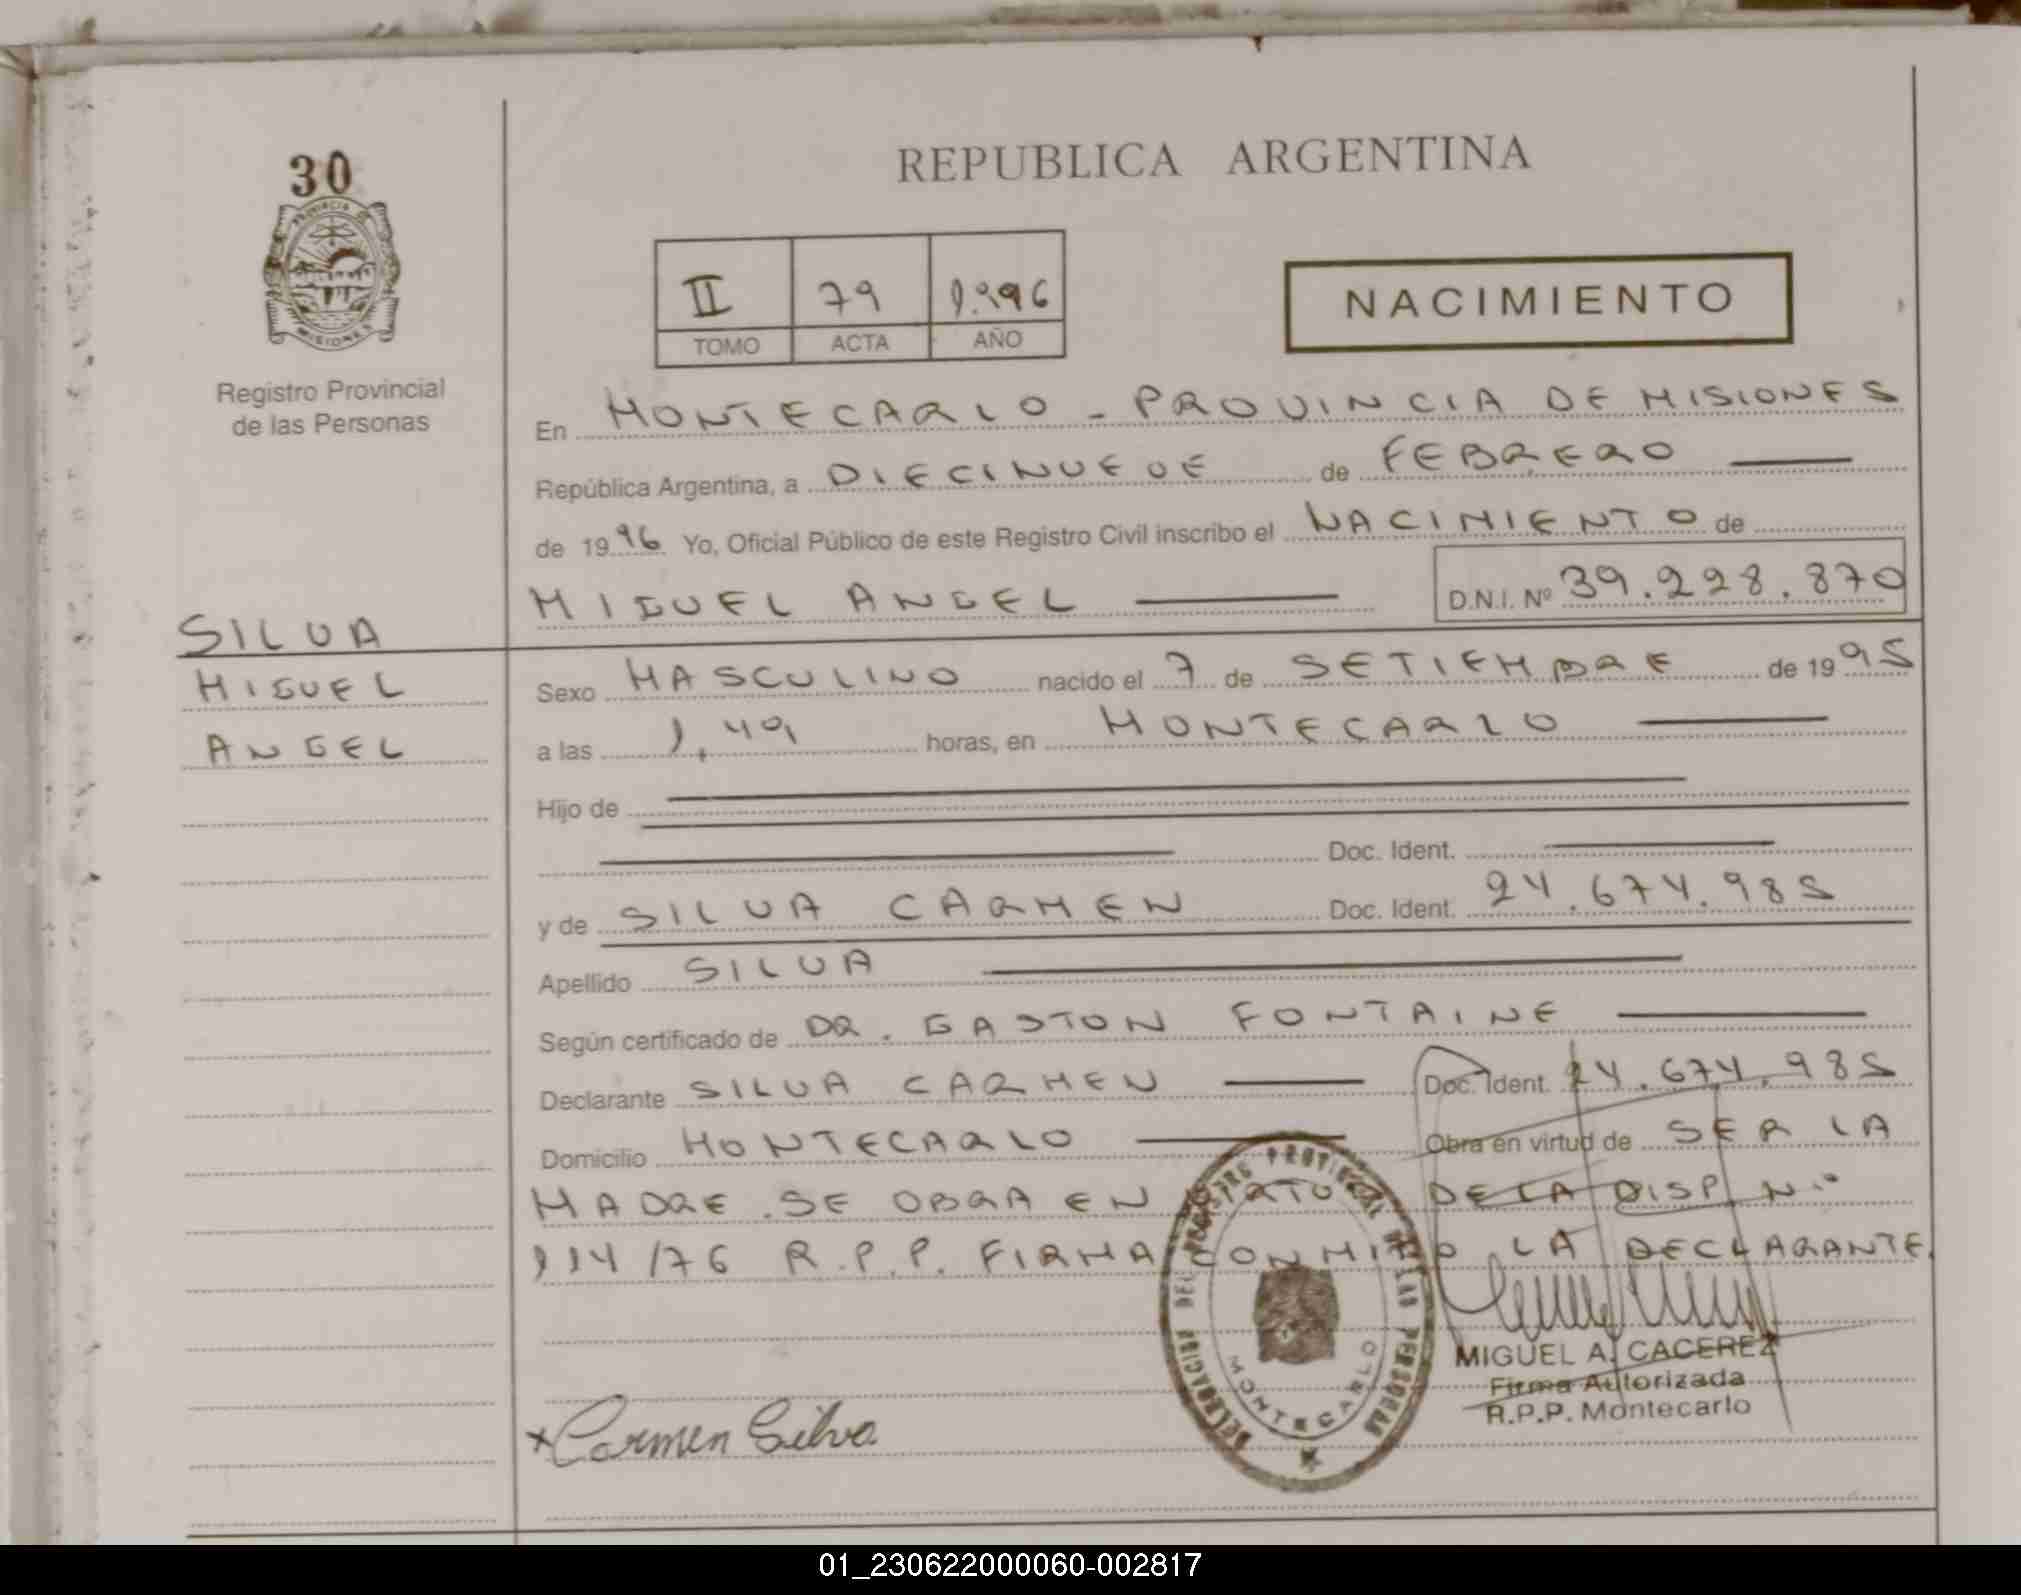 30
PROVINCIA DE
MISIONES
Registro Provincial
de las Personas
SILVA
MIGUEL
ANGEL
REPUBLICA ARGENTINA
II 79 1.996
TOMO ACTA AÑO
NACIMIENTO
En MONTECARLO - PROVINCIA DE MISIONES
República Argentina, a DIECINUEVE de FEBRERO
de 1996 Yo, Oficial Público de este Registro Civil inscribo el NACIMIENTO de
MIGUEL ANGEL D.N.I. Nº 39.228.870
Sexo MASCULINO nacido el 7 de SETIEMBRE de 1995
a las 1,49 horas, en MONTECARLO
Hijo de
Doc. Ident.
y de SILVA CARMEN Doc. Ident. 24.674.985
Apellido SILVA
Según certificado de DR. GASTON FONTAINE
Declarante SILVA CARMEN Doc. Ident. 24.674.985
Domicilio MONTECARLO Obra en virtud de SER LA
MADRE. SE OBRA EN DE LA DISP. Nº
114/76 R.P.P. FIRMA CONMIGO LA DECLARANTE.
DELEGACION DEL REGISTRO PROVINCIAL DE LAS PERSONAS
MONTECARLO
MIGUEL A. CACEREZ
Firma Autorizada
R.P.P. Montecarlo
x Carmen Silva
01_230622000060-002817